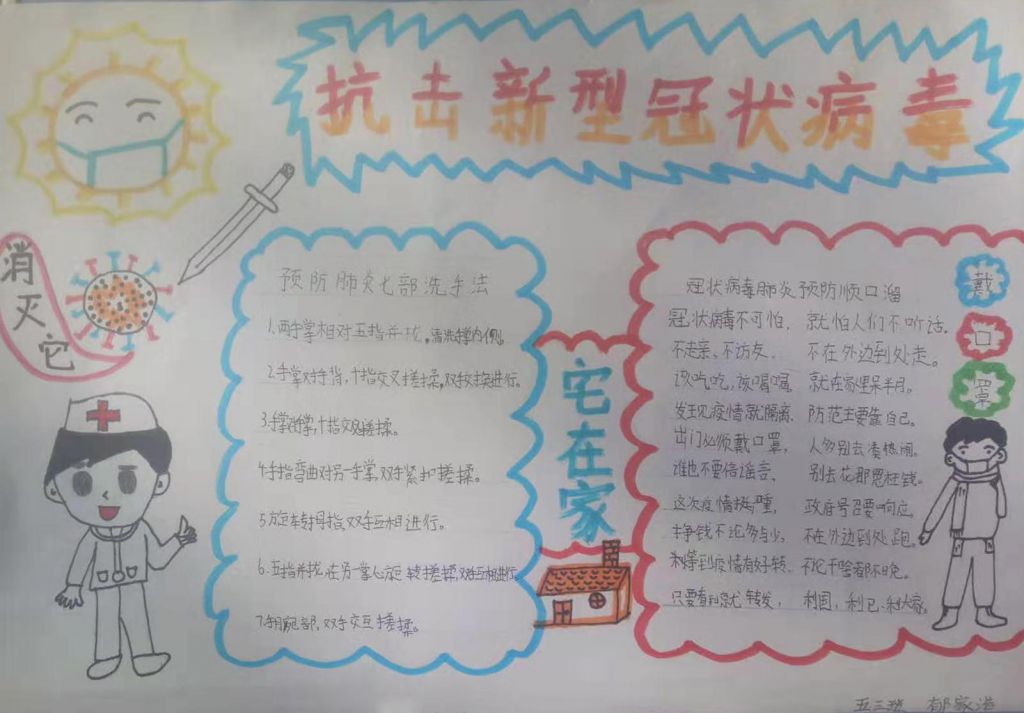 抗击新型冠状病毒
消灭它
预防肺炎七部洗手法
1.两手掌相对五指并拢,清洗掌内侧
2.手掌对手背,十指交叉搓揉,双手交换进行。
3.掌对掌,十指交叉搓揉。
4.手指弯曲对另一手掌,双手紧扣搓揉。
5.旋转拇指,双手互相进行。
6.五指并拢,在另一掌心旋转搓揉,双手互相进行
7.手腕部,双手交互搓揉。
宅在家
冠状病毒肺炎预防顺口溜
冠状病毒不可怕, 就怕人们不听话。
不走亲,不访友, 不在外边到处走。
该吃吃,该喝喝, 就在家里呆半月。
发现疫情就隔离, 防范主要靠自己。
出门必须戴口罩, 人多别去凑热闹。
谁也不要信谣言, 别去花那冤枉钱。
这次疫情挺严重, 政府号召要响应。
挣钱不论多与少, 不在外边到处跑。
等到疫情有好转, 不论干啥都不晚。
只要看到就转发, 利国,利己,利大家。
戴口罩
五三班 郁家